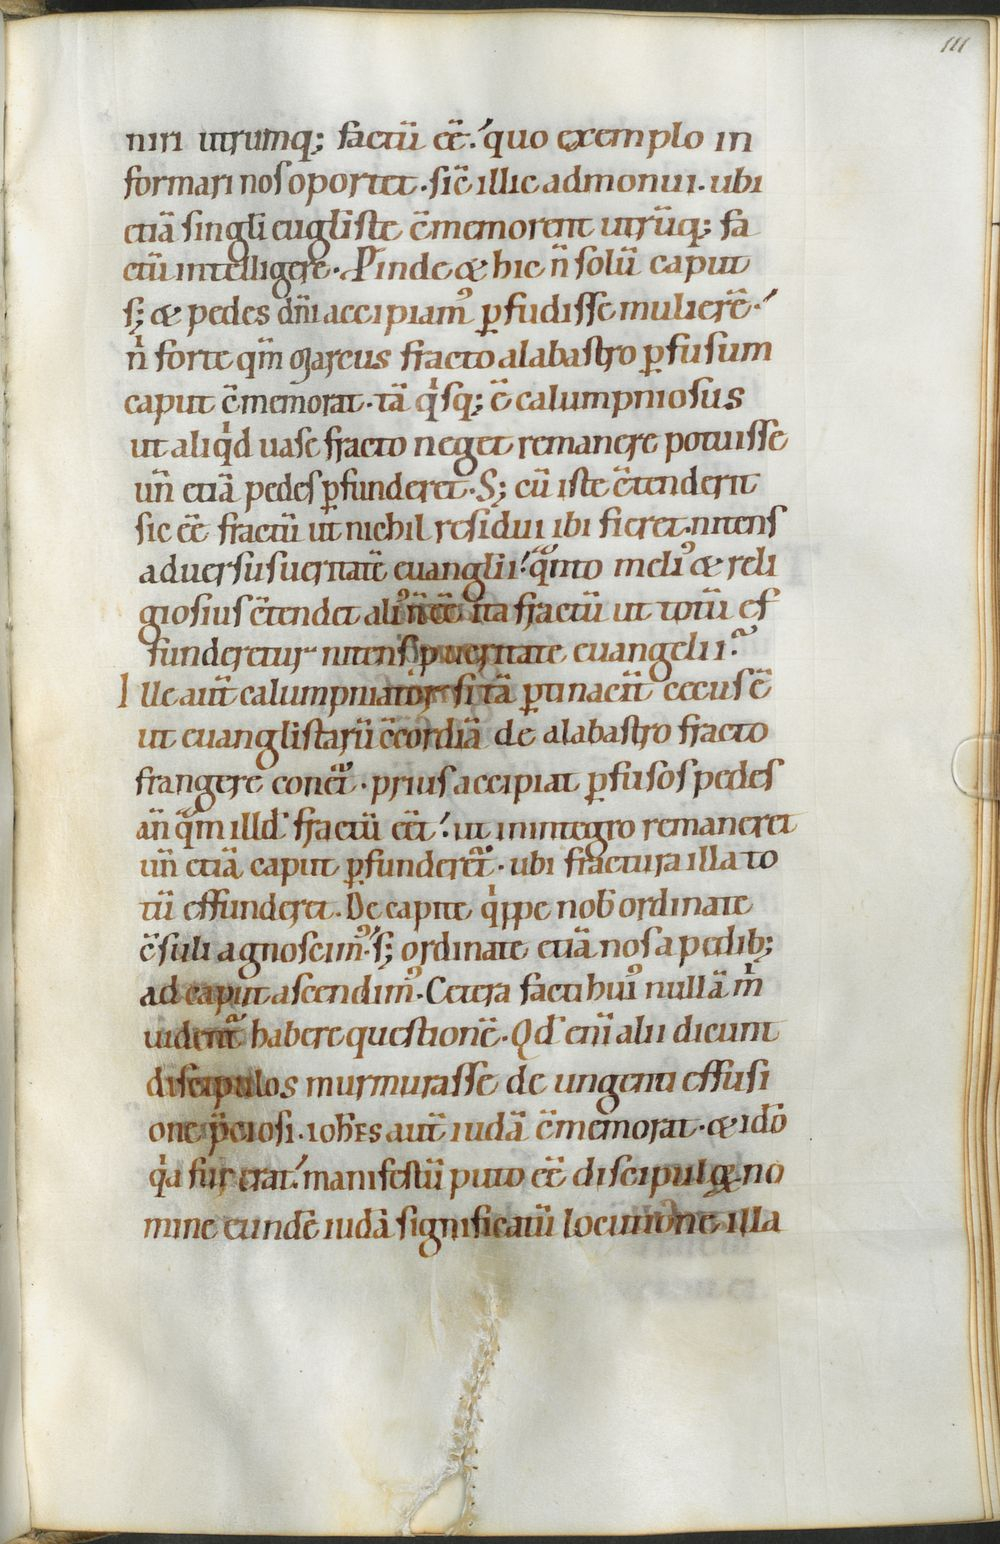 111
niri utrumq; factū ēē. quo exemplo in
formari nos oportet. sic̄ illic admonui. ubi
etiā singli eugliste c̄memorent utrūq; fa
ctū intelligere. Pinde & hic ñ solū caput
s; & pedes dn̄i accipiam᾽ ꝑfudisse mulierē.
n̍ forte qm̄ marcus fracto alabastro ꝑfusum
caput c̄memorat. tā q̍sq; ē calumpniosus
ut aliq̍d uase fracto neget remanere potuisse
un̄ etiā pedes ꝑfunderet. S; cū iste c̄tenderit
sic ēē fractū ut nichil residui ibi fieret. nitens
aduersus ueritatē euanglii. q̃nto meli᾽ & reli
giosius c̄tendet ali᾽ ñ ēē ita fractū ut totū ef
funderetur nitens p̱ ueritate euangelii.
Ille aut̄ calumpniator si tā ꝑtinacit̄ cecus ē
ut euanglistarū c̄cordiā de alabastro fracto
frangere conet᷑. prius accipiat ꝑfusos pedes
an̄ q̃m illd᾽ fractū ēēt. ut in integro remaneret
un̄ etiā caput ꝑfunderet᷑. ubi fractura illa to
tū effunderet. De capite q̍ppe nob̄ ordinate
c̄suli agnoscim᾽. s; ordinate etiā nos a pedib;
ad caput ascendim᾽. Cetera facti hui᾽ nullā m̍
uident᷑ habere questionē. Qd᾽ eni᷑ alii dicunt
discipulos murmurasse de ungenti effusi
one p̄ciosi. ioh̄es aut̄ iudā c̄memorat. & idō
q̍a fur erat. manifestū puto ēē discipulꝝ no
mine eundē iudā significatū locutione illa